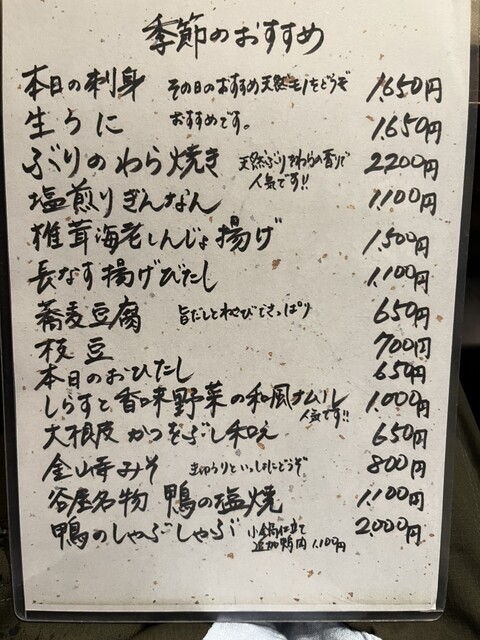 季節のおすすめ
本日の刺身 その日のおすすめ天然モノをどうぞ 1,650円
生うに おすすめです。 1,650円
ぶりのわら焼き 天然ぶりをわらの香りで 人気です!! 2200円
塩煎りぎんなん 1,100円
椎茸海老しんじょ揚げ 1,500円
長なす揚げびたし 1,100円
蕎麦豆腐 旨だしとわさびでさっぱり 650円
枝豆 700円
本日のおひたし 650円
しらすと香味野菜の和風ナムル 人気です!! 1,000円
大根皮かつおぶし和え 650円
金山寺みそ きゅうりといっしょにどうぞ 800円
谷屋名物 鴨の塩焼 1,100円
鴨のしゃぶしゃぶ 小鍋仕立て 2,000円
追加鴨肉 1,100円